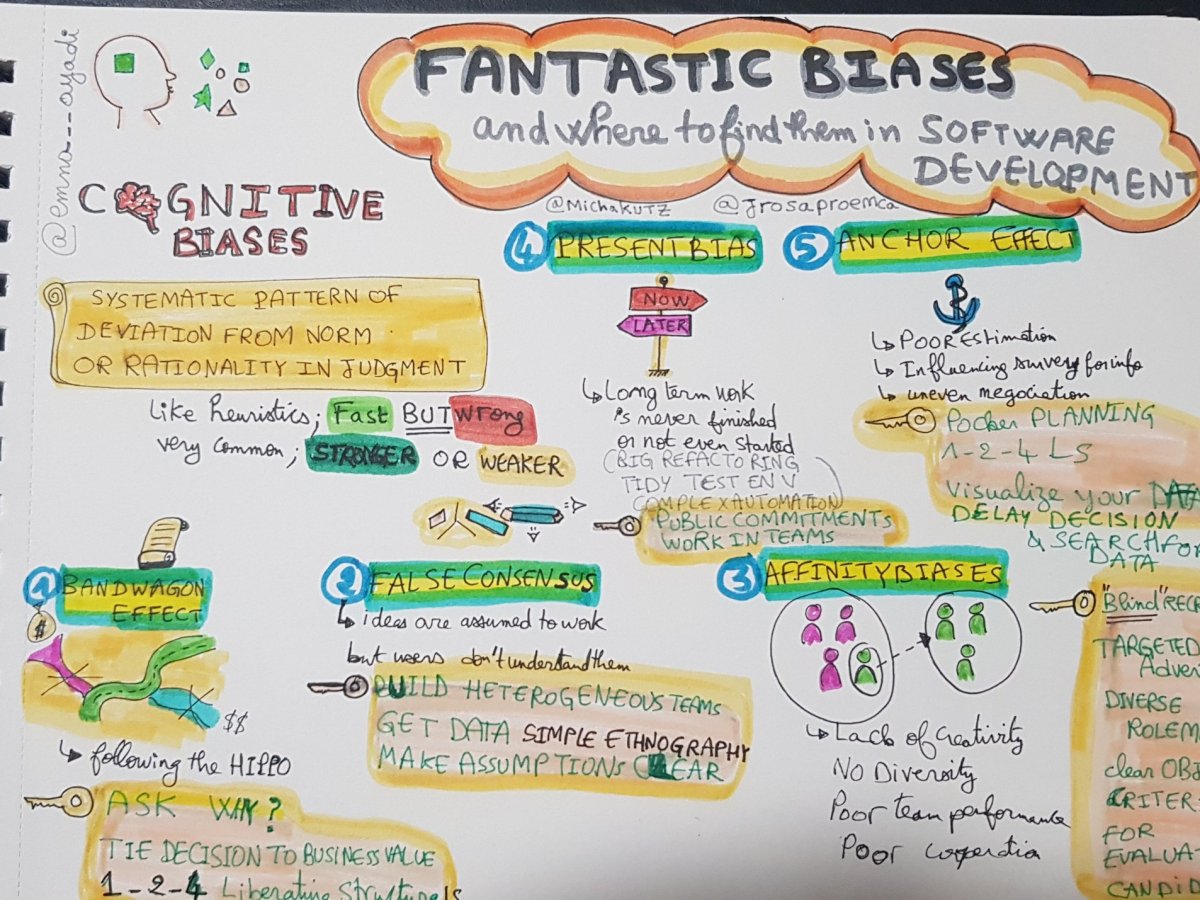 @emna--ayadi
FANTASTIC BIASES
and where to find them in SOFTWARE
DEVELOPMENT
@MichaKUTZ
@Jrosaproenca
COGNITIVE
BIASES
SYSTEMATIC PATTERN OF
DEVIATION FROM NORM
OR RATIONALITY IN JUDGMENT
Like heuristics; Fast BUT Wrong
very common; STRONGER OR WEAKER
1 BANDWAGON
EFFECT
$
$$
following the HIPPO
ASK WHY?
TIE DECISION TO BUSINESS VALUE
1-2-4 Liberating Structur
2 FALSE CONSENSUS
ideas are assumed to work
but users don't understand them
BUILD HETEROGENEOUS TEAMS
GET DATA SIMPLE ETHNOGRAPHY
MAKE ASSUMPTIONS CLEAR
3 AFFINITY BIASES
Lack of Creativity
NO Diversity
Poor team performance
Poor cooperation
"Blind" RECR
TARGETED
Adver
DIVERSE
ROLEM
clear OBJ
CRITER
FOR
EVALUAT
CANDID
4 PRESENT BIAS
NOW
LATER
Long term work
is never finished
or not even started
(BIG REFACTORING
TIDY TEST ENV
COMPLEX AUTOMATION)
PUBLIC COMMITMENTS
WORK IN TEAMS
5 ANCHOR EFFECT
POOR EStimation
Influencing survery for info
uneven megociation
Pocker PLANNING
1-2-4 LS
Visualize your DATA
DELAY DECISION
& SEARCH FOR
DATA